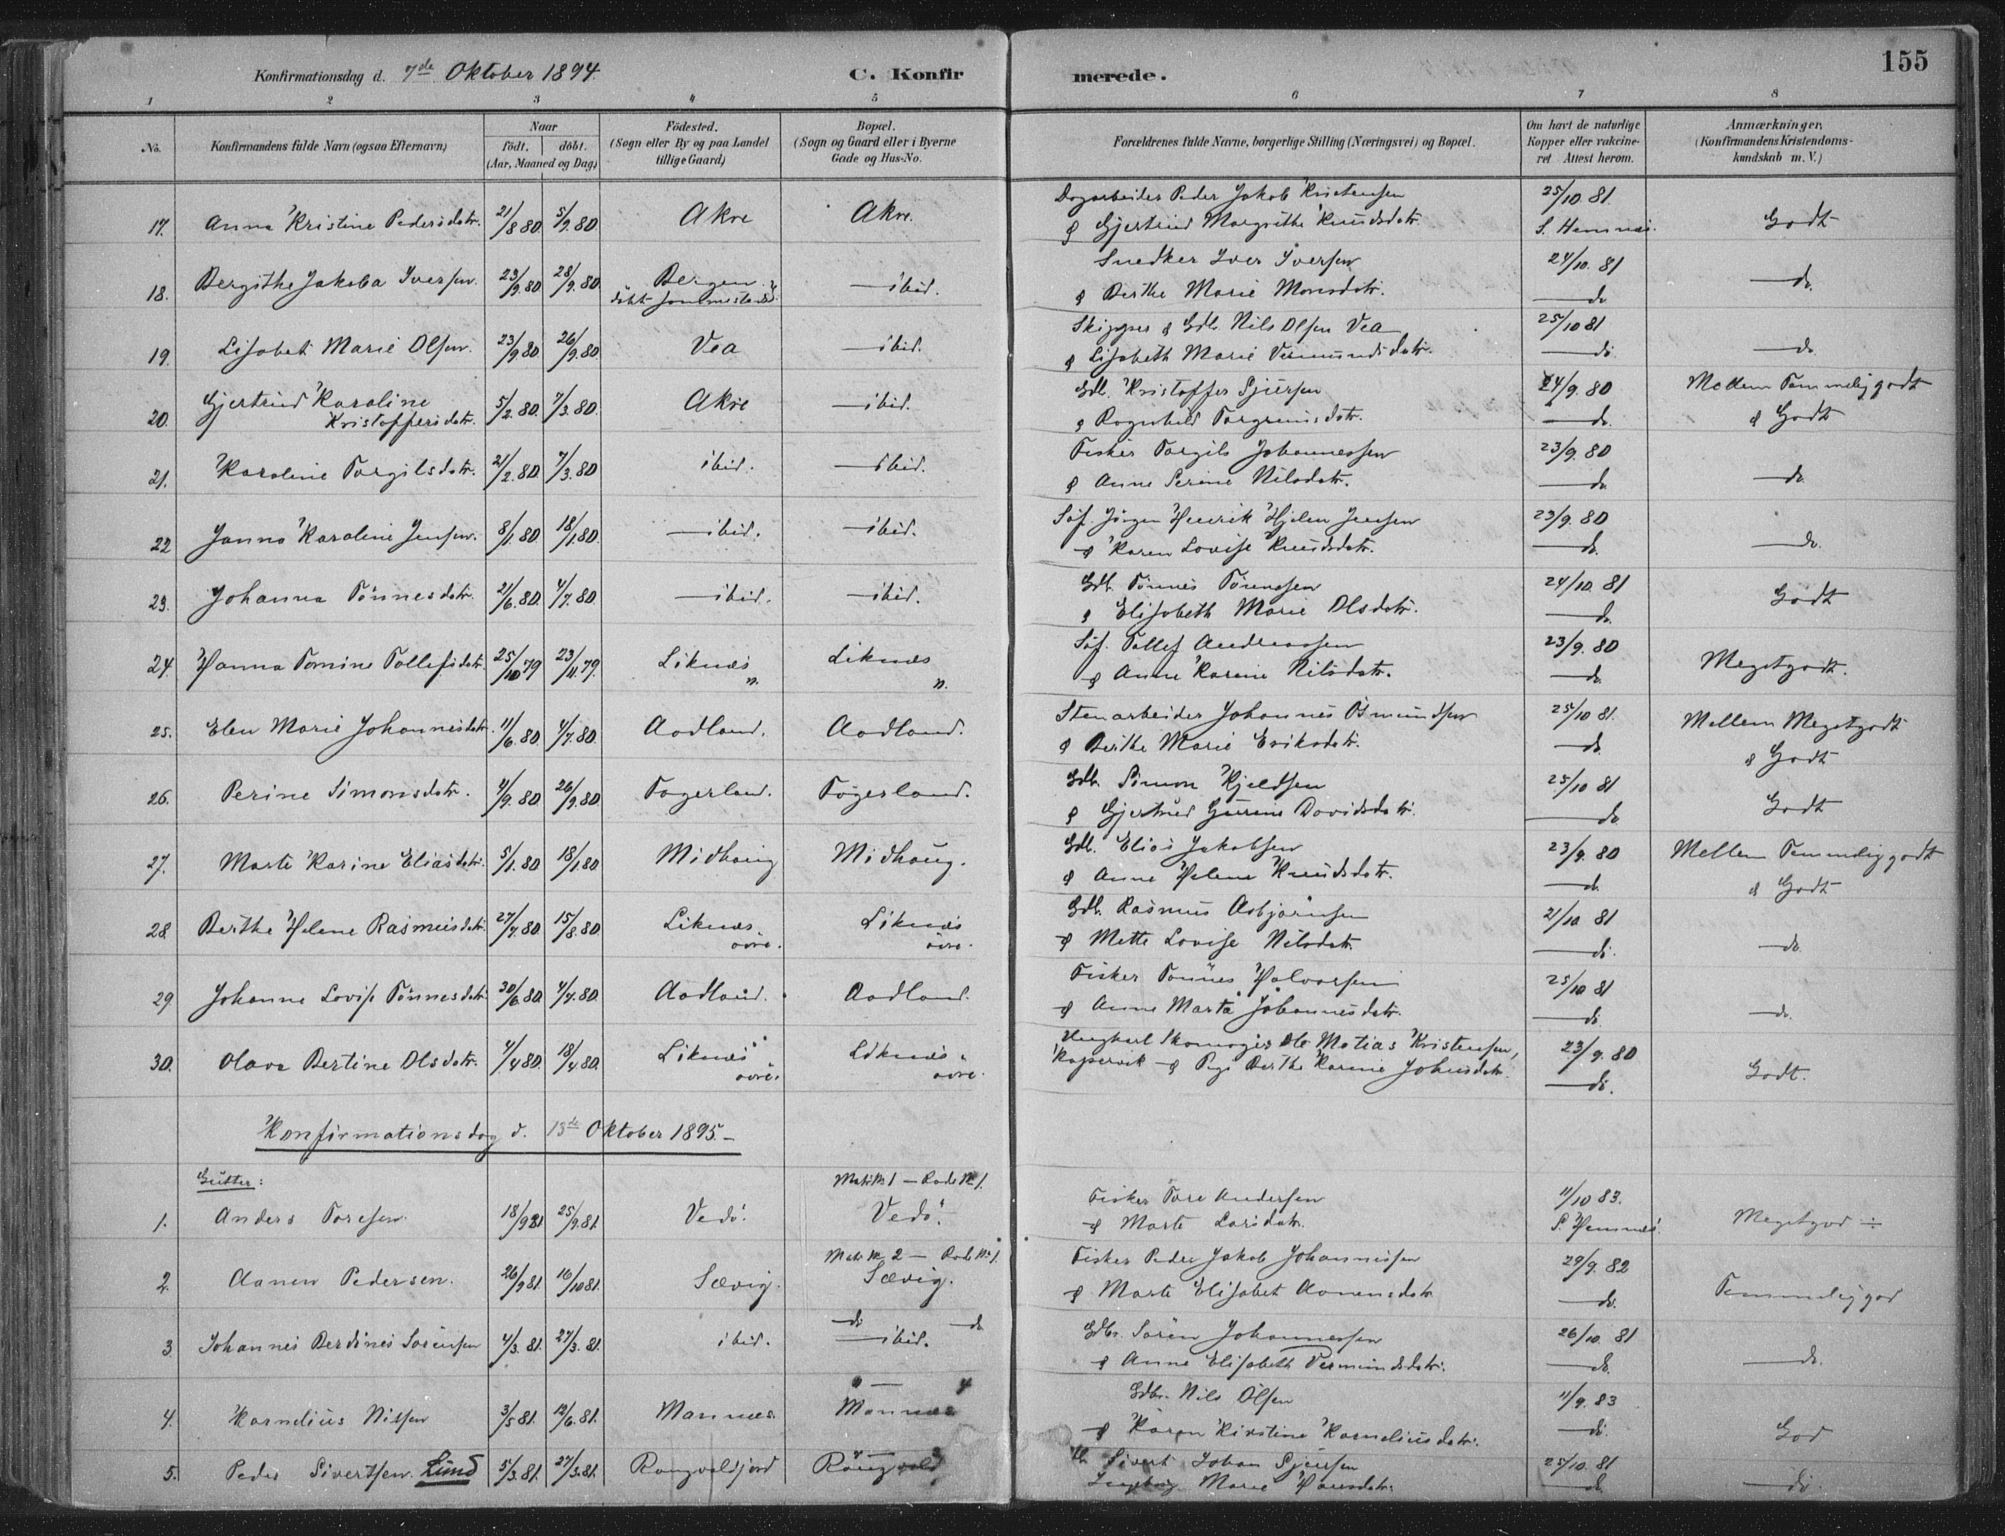 155
Konfirmationsdag d. 7de Oktober 1894. C. Konfirmerede.
1 2 3 4 5 6 7 8
No. Konfirmandens fulde Navn (ogsaa Efternavn) Naar født. døbt. (Aar, Maaned og Dag) Fødested. (Sogn eller By og paa Landet tillige Gaard) Bopæl. (Sogn og Gaard eller i Byerne Gade og Hus-No. Forældrenes fulde Navne, borgerlige Stilling (Næringsvei) og Bopæl. Om havt de naturlige Kopper eller vakcineret. Attest herom. Anmærkninger. (Konfirmandens Kristendomskundskab m. V.)
17. Anna Kristine Pedersdatr. 21/8 80 5/9. 80 Akre Akre. Dagarbeider Peder Jakob Kristensen 25/10. 81. Godt
& Gjertrud Margrethe Knudsdatr. S. Hemnæs.
18. Bergithe Jakoba Iversen. 23/9. 80 28/9. 80 Bergen —ibid. Snedker Iver Iversen 24/10. 81 —do.
døbt & Berthe Marie Monsdatr. —do
19. Lisabet Marie Olsen. 23/9 80 26/9. 80 Vea —ibid. Skipper & Gdb. Nils Olsen Vea 25/10 81 —do
& Lisabeth Marie Vermundsdatr. —do
20. Gjertrud Karoline Kristoffersdatr. 5/2. 80. 7/3. 80. Akre —ibid. Gdb. Kristoffer Sjursen 24/9. 80 Mellem Temmelig godt
& Ragnhild Torgrimsdatr. —do. & Godt
21. Karoline Torgilsdatr. 21/2. 80. 7/3. 80 ibid. —ibid. Fisker Torgils Johannessen 23/9. 80 —do
& Anne Serine Nilsdatr. —do.
22 Janna Karoline Jensen. 8/1. 80 18/1 80. —ibid. —ibid. Søf. Jørgen Henrik Hjelm Jensen 23/9. 80 —do.
& Karen Lovise Knudsdatr. —do.
23. Johanna Tönnesdatr. 21/6. 80. 4/7. 80. —ibid. —ibid. Gdb. Tönnes 24/10. 81 Godt
& Elisabeth Marie Olsdatr. —do
24. Hanna Tomine Tollefsdatr. 25/10 79 23/11. 79. Liknæs n. Liknæs n. Søf. Tollef Andreassen 23/9. 80 Megetgodt.
& Anne Karine Nilsdatr. —do.
25. Elen Marie Johannesdatr. 11/6. 80 4/7. 80. Aadland. Aadland. Stenarbeider Johannes Osmundsen 25/10 81. Mellem Megetgodt
& Berthe Marie Eriksdatr. —do. & Godt
26. Perine Simonsdatr. 4/9. 80 26/9. 80. Fagerland. Fagerland. Gdb. Simon Kjeldsen 25/10 81 Godt
& Gjertrud Gurine Davidsdatr. —do.
27. Marte Karine Eliasdatr. 5/1. 80 18/1 80 Midhaug Midhaug. Gdb. Elias Jakobsen 23/9. 80 Mellem Temmelig godt
& Anne Helene Knudsdatr. —do. & Godt
28. Berthe Helene Rasmusdatr. 27/7. 80 15/8. 80. Liknæs øvre. Liknæs øvre. Gdb. Rasmus Asbjørnsen 21/10 81 —do.
& Mette Lovise Nilsdatr. —do.
29 Johanne Lovise Tönnesdatr. 20/6. 80. 4/7. 80. Aadland. Aadland. Fisker Tönnes Halvorsen 25/10 81 —do.
& Anne Marta Johannesdatr. —do.
30. Olava Bertine Olsdatr. 4/4 80. 18/4 80. Liknæs øvre. Liknæs øvre. Ungkarl Skomager Ole Matias Kristensen, 23/9. 80 Godt.
Kopervik & Pige Berthe Karine Johnsdatr. —do.
Konfirmationsdag d. 13de Oktober 1895.—
Gutter:
1. Anders Toresen. 18/9 81 25/9. 81. Vedö. Vedö. Fisker Tore Andersen 11/10 83. Megetgod ÷
& Marte Larsdatr. S. Hemnæs.
2. Aanen Pedersen. 26/9 81. 16/10 81. Sævig. Sævig. Fisker Peder Jakob Johannessen 29/9. 82 Temmelig god
& Marte Elisabet Aanensdatr —do.
3 Johannes Berdines Sörensen 4/3. 81. 27/3. 81. ibid. —ibid. Gdbr. Sören Johannessen 26/10. 81 —do.
& Anne Elisabeth Vermundsdatr. —do.
4. Kornelius Nilsen 3/5 81. 12/6. 81. Mannes. Mannes Gdbr. Nils Olsen 11/9. 83 God
& Karen Kirstine Korneliusdatr. —do.
5. Peder Sivertsen Lund 5/3. 81. 27/3. 81. Rangvaldjord Rangvald Sivert Johan Sjursen 25/10. 81 —do.
Ingeborg Marie Hansdatr. —do